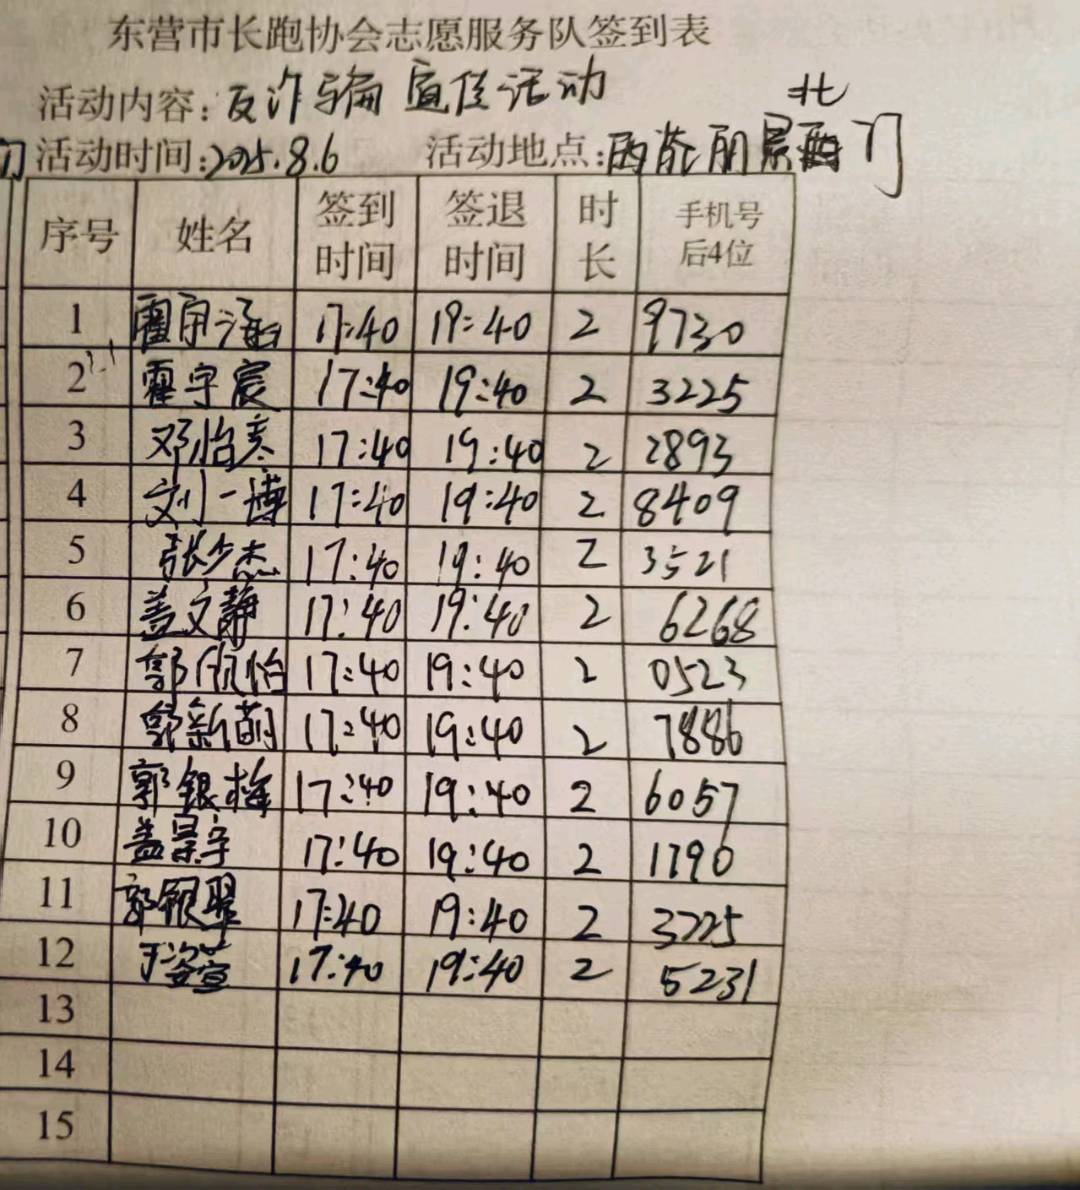 东营市长跑协会志愿服务队签到表
活动内容：反诈骗宣传活动
北
活动时间：2025.8.6 活动地点：丽景门
序号 姓名 签到时间 签退时间 时长 手机号后4位
1 霍宇涵 17:40 19:40 2 9730
2 霍宇宸 17:40 19:40 2 3225
3 邓怡彦 17:40 19:40 2 2893
4 刘一博 17:40 19:40 2 8409
5 张少杰 17:40 19:40 2 3521
6 盖文静 17:40 19:40 2 6268
7 郭欣怡 17:40 19:40 2 0523
8 郭新萌 17:40 19:40 2 7886
9 郭银梅 17:40 19:40 2 6057
10 盖景宇 17:40 19:40 2 1790
11 郭银翠 17:40 19:40 2 3225
12 于姿萱 17:40 19:40 2 5231
13
14
15